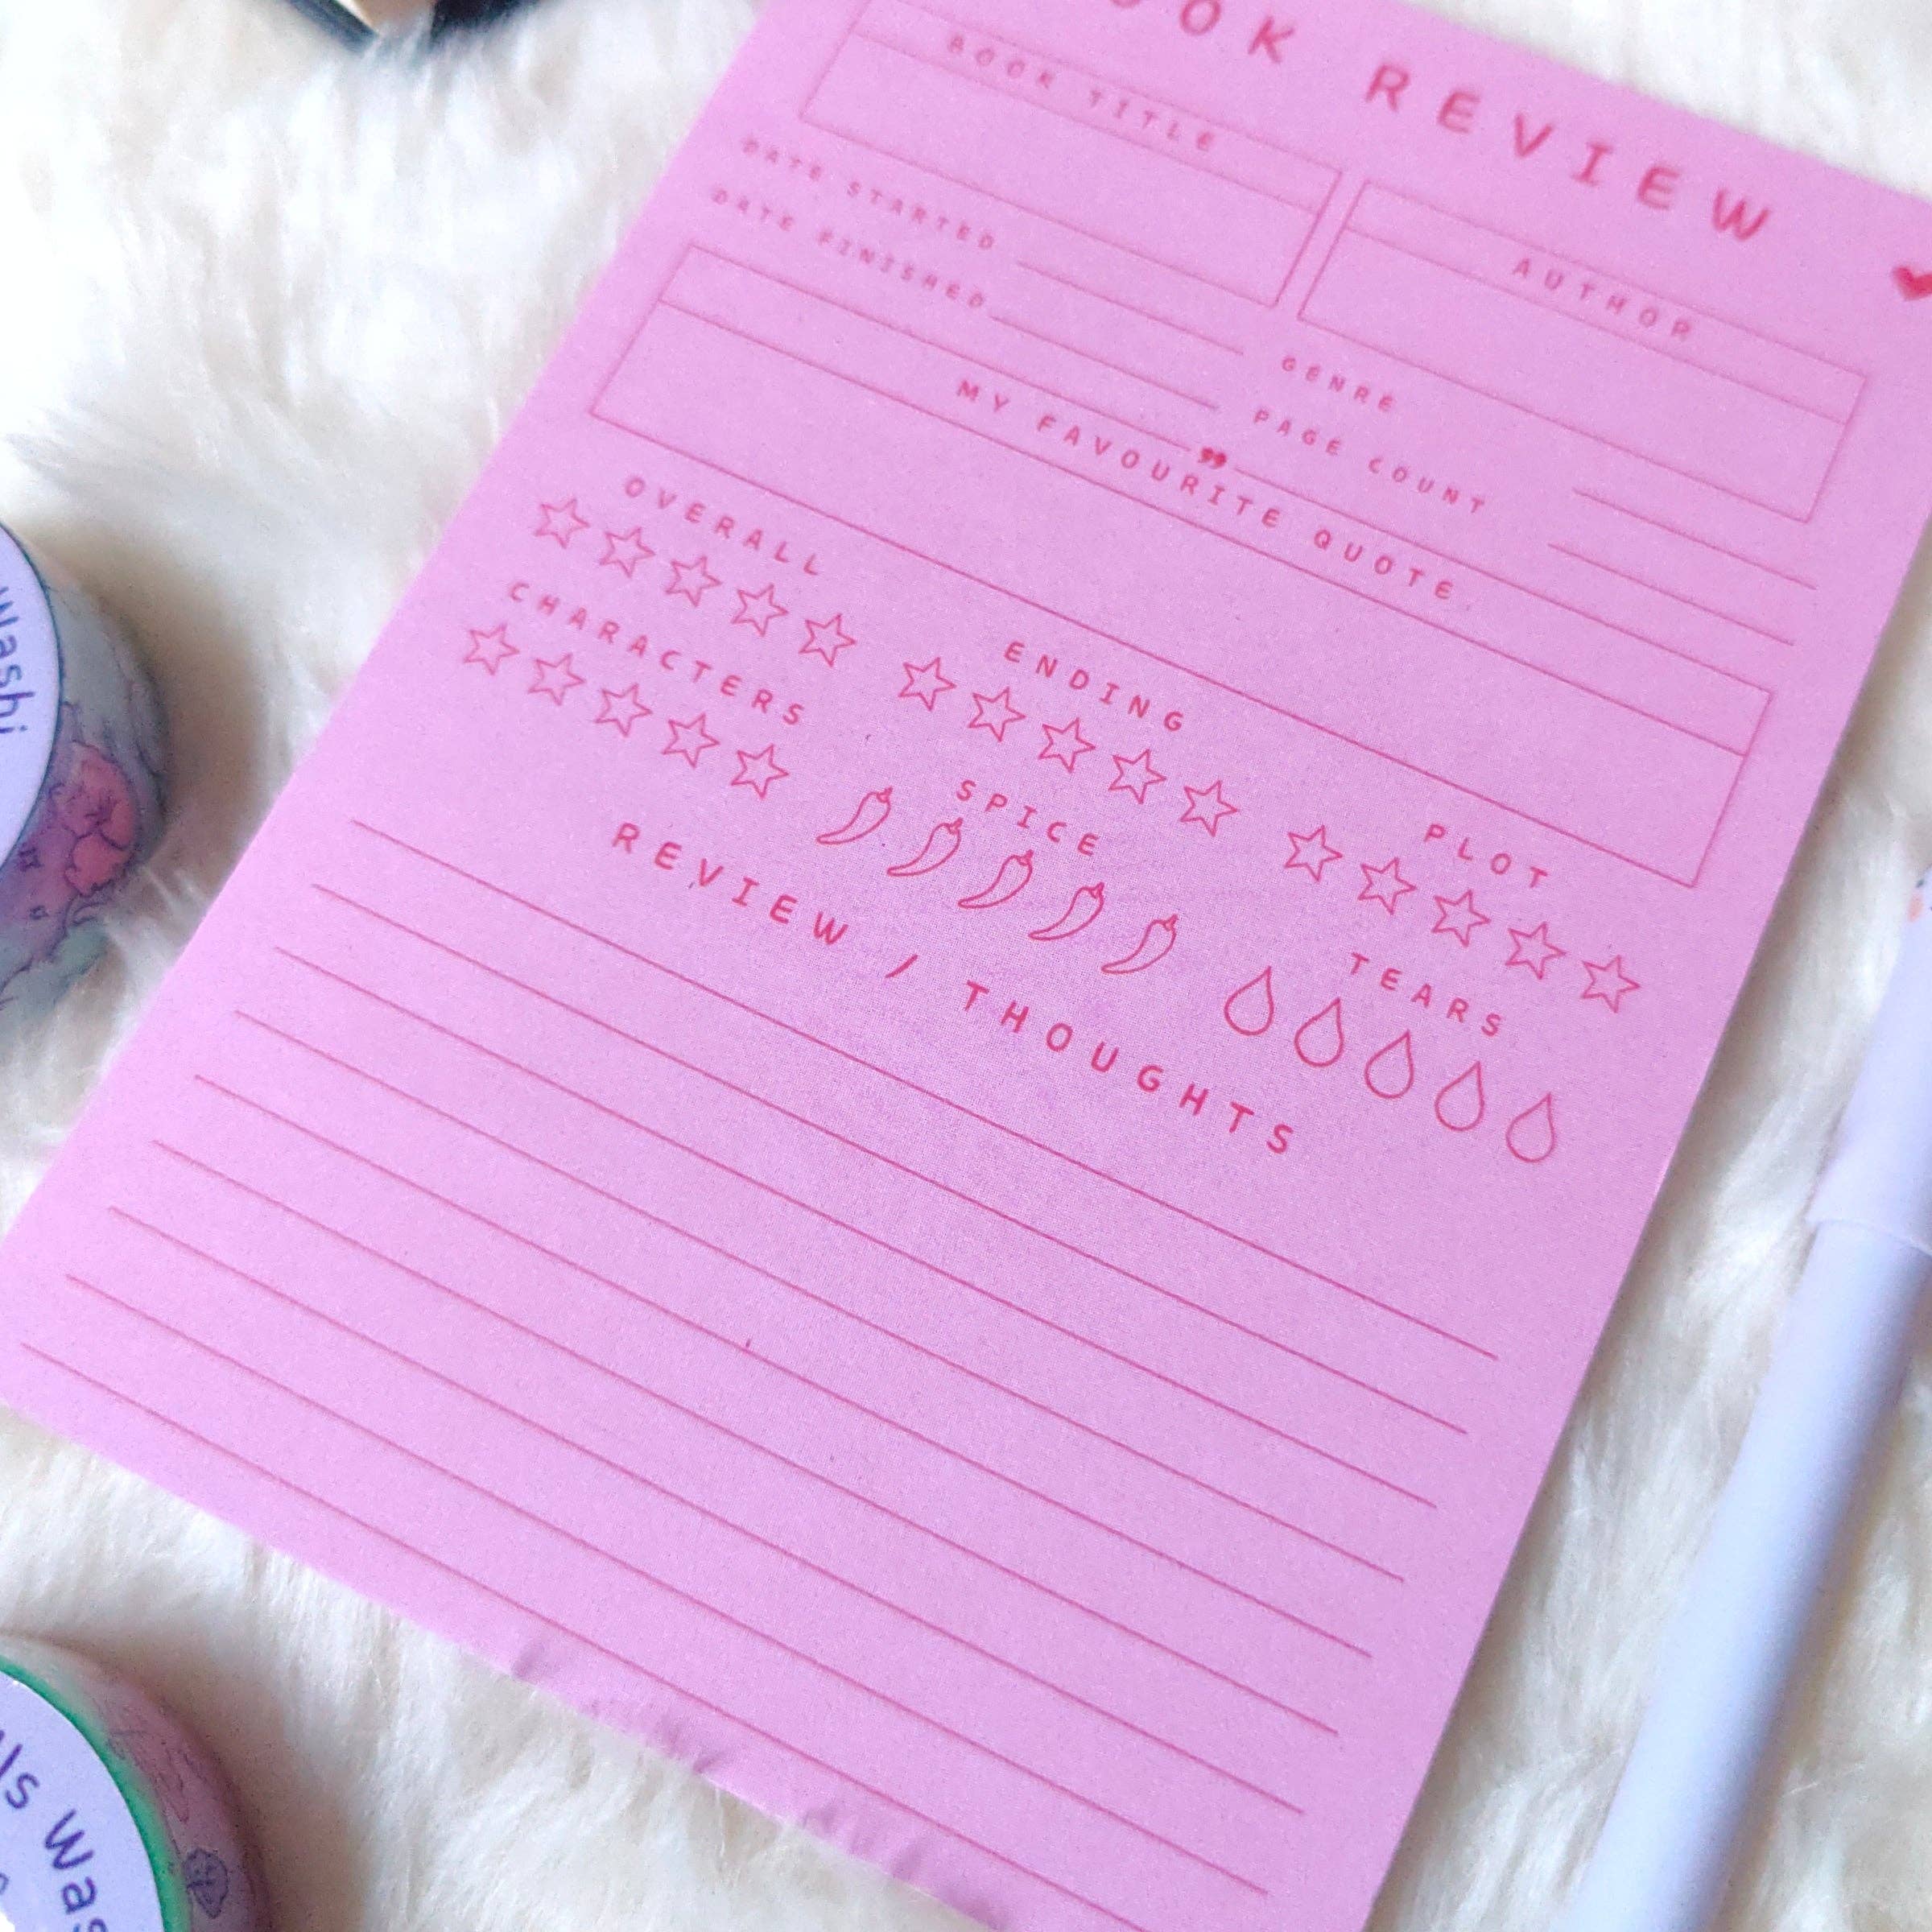 OOK REVIEW
BOOK TITLE
AUTHOR
DATE STARTED
GENRE
DATE FINISHED
PAGE COUNT
”
MY FAVOURITE QUOTE
OVERALL
ENDING
PLOT
CHARACTERS
SPICE
TEARS
REVIEW / THOUGHTS
Washi
ls Was